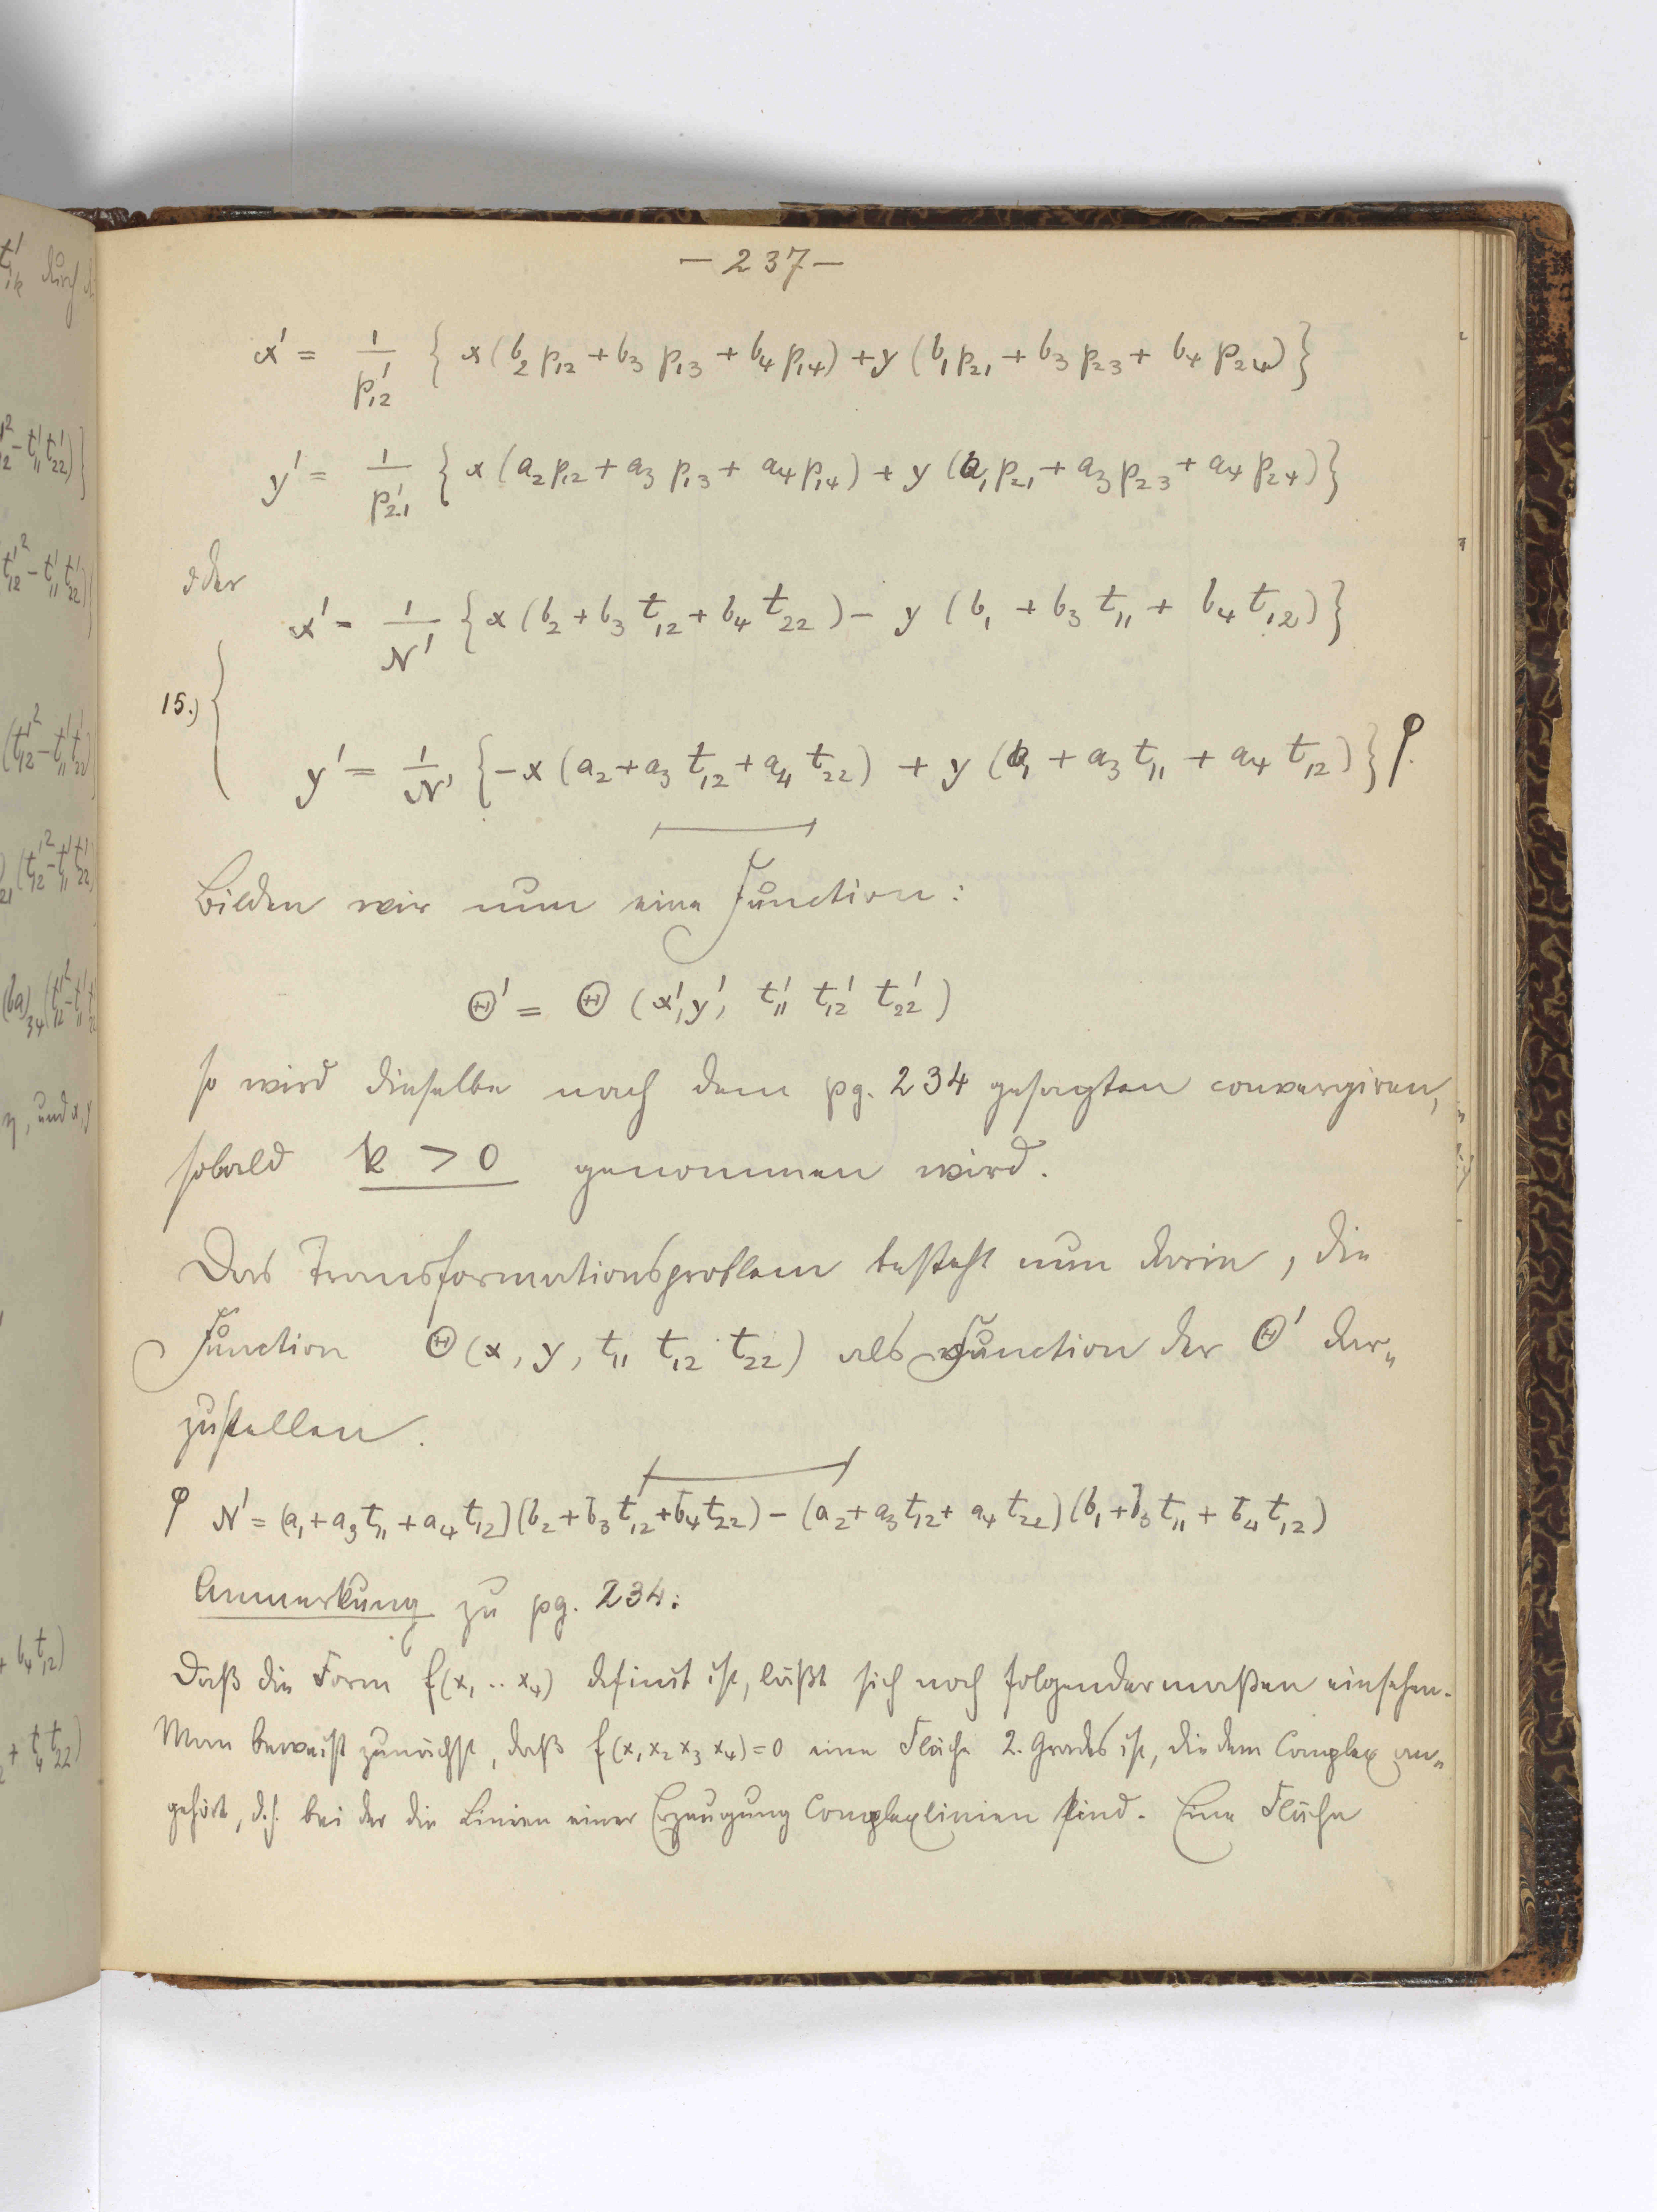 t'ik durch d
— 237 —
x' = 1/p'12 { x (b2 p12 + b3 p13 + b4 p14) + y (b1 p21 + b3 p23 + b4 p24) }
y' = 1/p'21 { x (a2 p12 + a3 p13 + a4 p14) + y (a1 p21 + a3 p23 + a4 p24) }
oder
x' = 1/N' { x (b2 + b3 t12 + b4 t22) − y (b1 + b3 t11 + b4 t12) }
15.)
y' = 1/N' { −x (a2 + a3 t12 + a4 t22) + y (a1 + a3 t11 + a4 t12) } φ.
Bilden wir nun eine Function:
Θ' = Θ (x', y', t'11 t'12 t'22)
so wird dieselbe nach dem pg. 234 gesagten convergiren,
sobald k > 0 genommen wird.
Das Transformationsproblem besteht nun darin, die
Function Θ(x, y, t11 t12 t22) als Function der Θ' dar„
zustellen.
φ N' = (a1 + a3 t11 + a4 t12)(b2 + b3 t12 + b4 t22) − (a2 + a3 t12 + a4 t22)(b1 + b3 t11 + b4 t12)
Anmerkung zu pg. 234:
Daß die Form f(x1 .. x4) definit ist, läßt sich noch folgendermaßen einsehen.
Man beweist zunächst, daß f(x1 x2 x3 x4) = 0 eine Fläche 2. Grades ist, die dem Complex an„
gehört, d.h. bei der die Linien einer Erzeugung Complexlinien sind. Eine Fläche